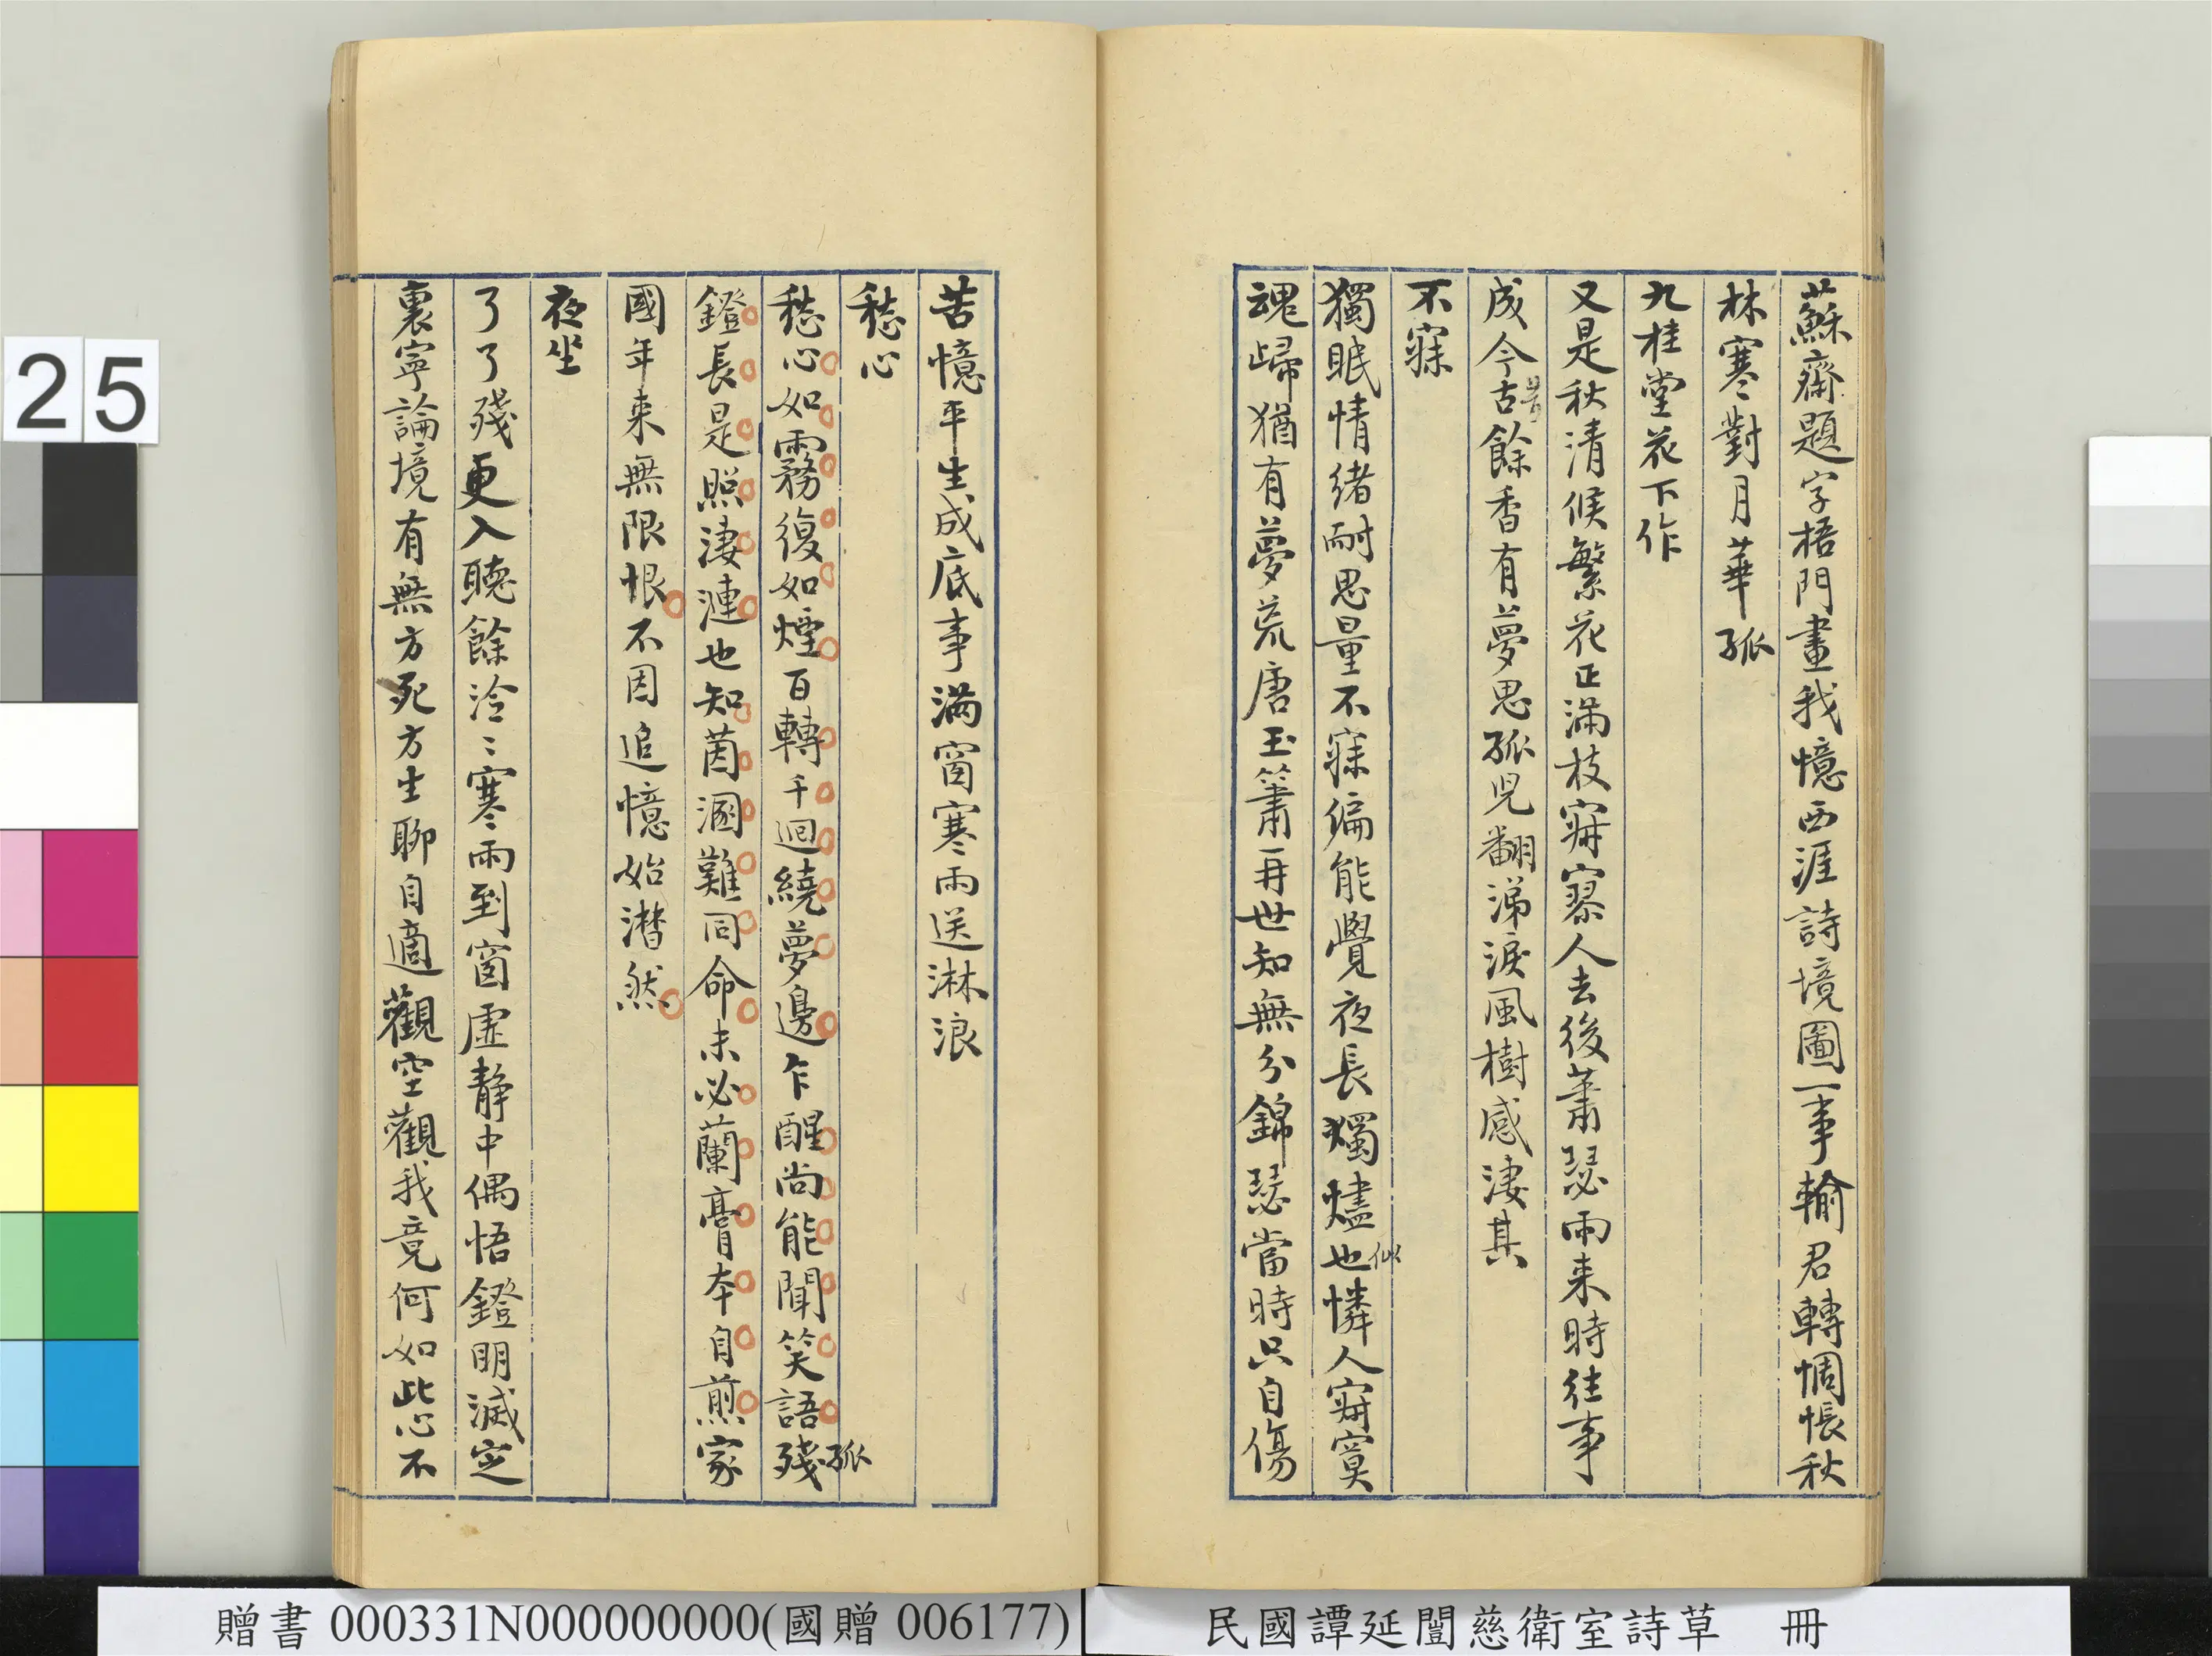 蘇齋題字梧門畫我憶西涯詩境圖一事輸君轉惆悵秋
林寒對月華孤
九桂堂花下作
又是秋清候繁花正滿枝寂寥人去後蕭瑟雨来時往事
成今古餘香有夢思孤児翻涕淚風樹感淒其
不寐
獨眠情緒耐思量不寐偏能覺夜長燭燼也憐人寂寞
似
魂歸猶有夢荒唐玉簫再世知無分錦瑟當時只自傷
苦憶平生成底事滿窗寒雨送淋浪
愁心
愁心如霧復如煙百轉千迴繞夢邊乍醒尚能聞笑語殘
孤
鐙長是照淒漣也知茵溷難同命未必蘭膏本自煎家
國年来無限恨不因追憶始潸然
夜坐
了了殘更入聽餘泠〻寒雨到窗虛靜中偶悟鐙明滅定
裏寧論境有無方死方生聊自適觀空觀我竟何如此心不
25
贈書 000331N000000000(國贈 006177)
民國譚延闓慈衛室詩草 冊